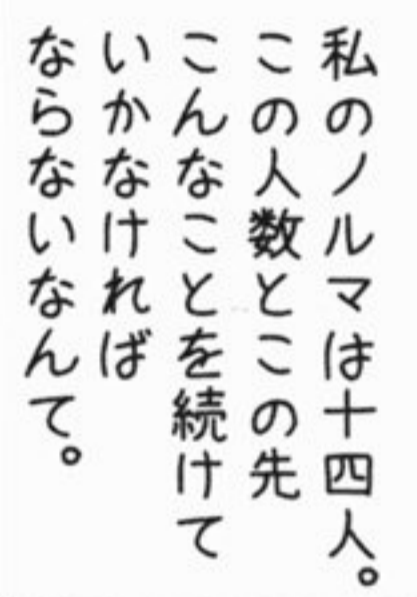 私のノルマは十四人。
この人数とこの先
こんなことを続けて
いかなければ
ならないなんて。